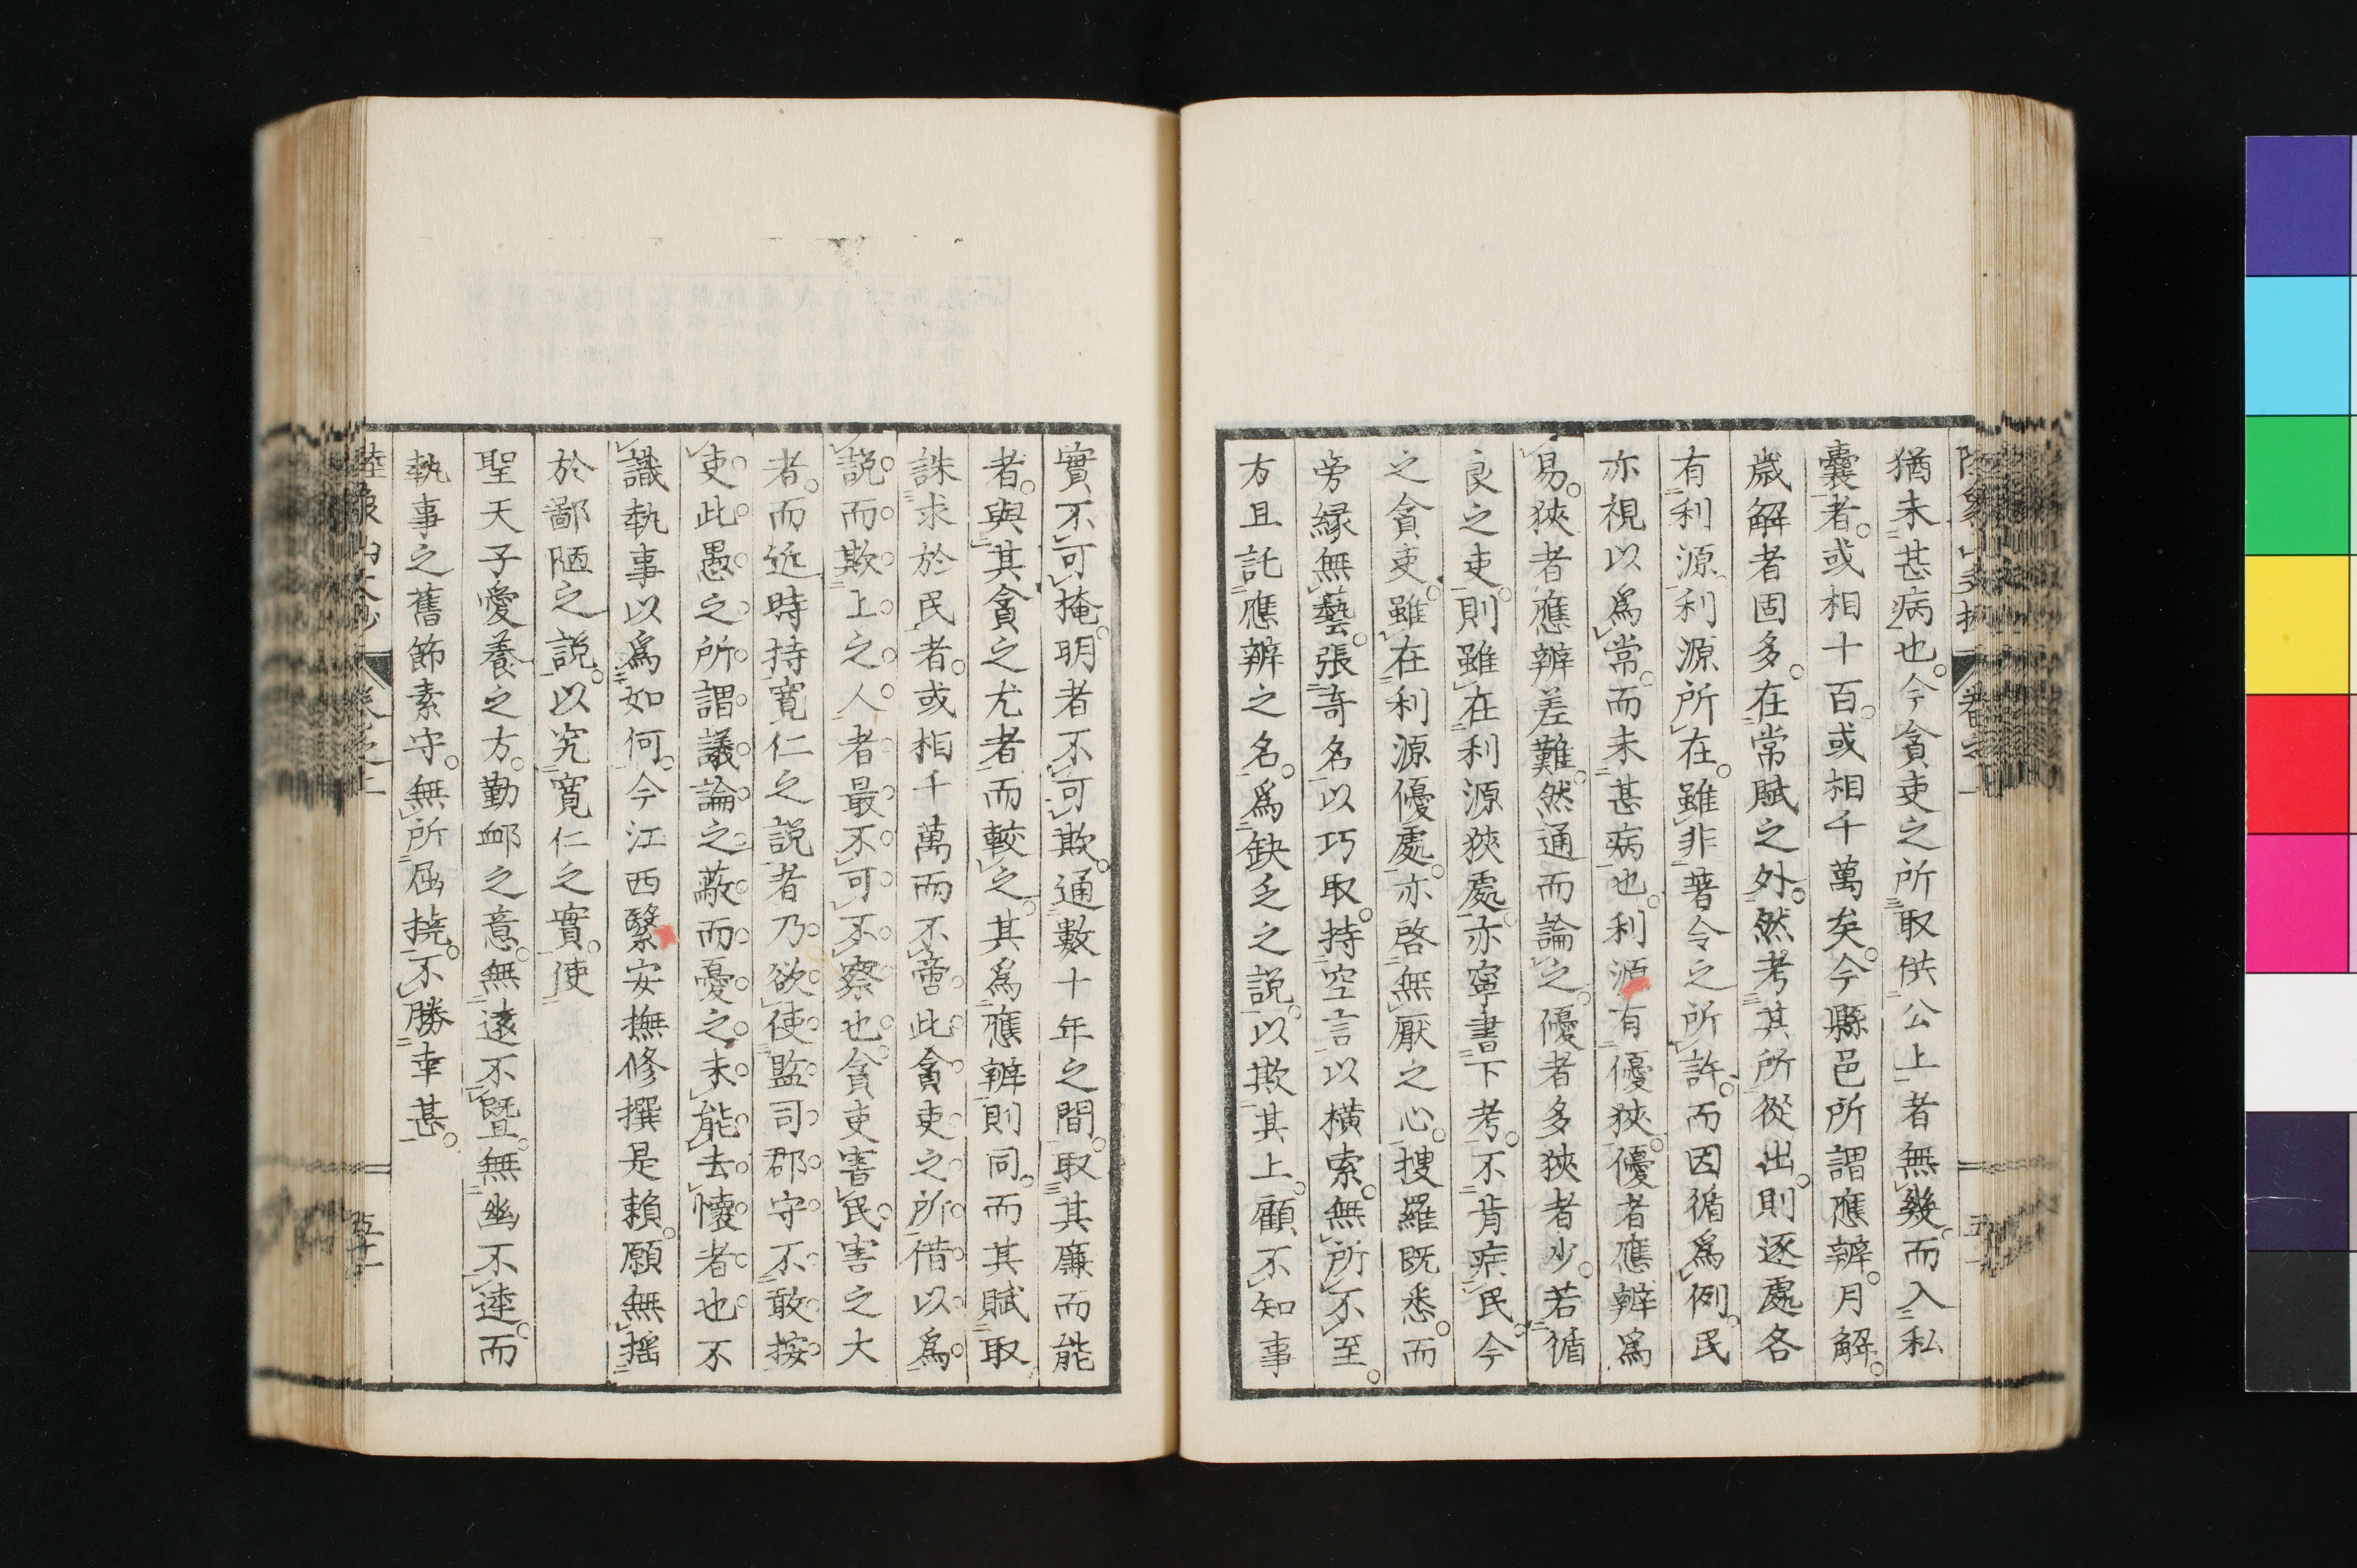 猶未甚病也今貪吏之所取供公上者無幾而入私
囊者或相十百或相千萬矣今縣邑所謂應辦月解
歲解者固多在常賦之外然考其所從出則逐處各
有利源利源所在雖非著令之所許而因循爲例民
亦視以爲常而未甚病也利源有優狹優者應辦爲
易狹者應辦差難然通而論之優者多狹者少若循
良之吏則雖在利源狹處亦寧書下考不肯疾民今
之貪吏雖在利源優處亦啓無厭之心搜羅既悉而
旁緣無藝張奇名以巧取持空言以橫索無所不至
方且託應辦之名爲缺乏之說以欺其上顧不知事
實不可掩明者不可欺通數十年之間取其廉而能
者與其貪之尤者而較之其爲應辦則同而其賦取
誅求於民者或相千萬而不啻此貪吏之所借以爲
說而欺上之人者最不可不察也貪吏害民害之大
者而近時持寬仁之說者乃欲使監司郡守不敢按
吏此愚之所謂議論之蔽而憂之未能去懷者也不
識執事以爲如何今江西繄安撫修撰是賴願無搖
於鄙陋之說以究寬仁之實使
聖天子愛養之方勤卹之意無遠不曁無幽不逹而
執事之舊節素守無所屈撓不勝幸甚